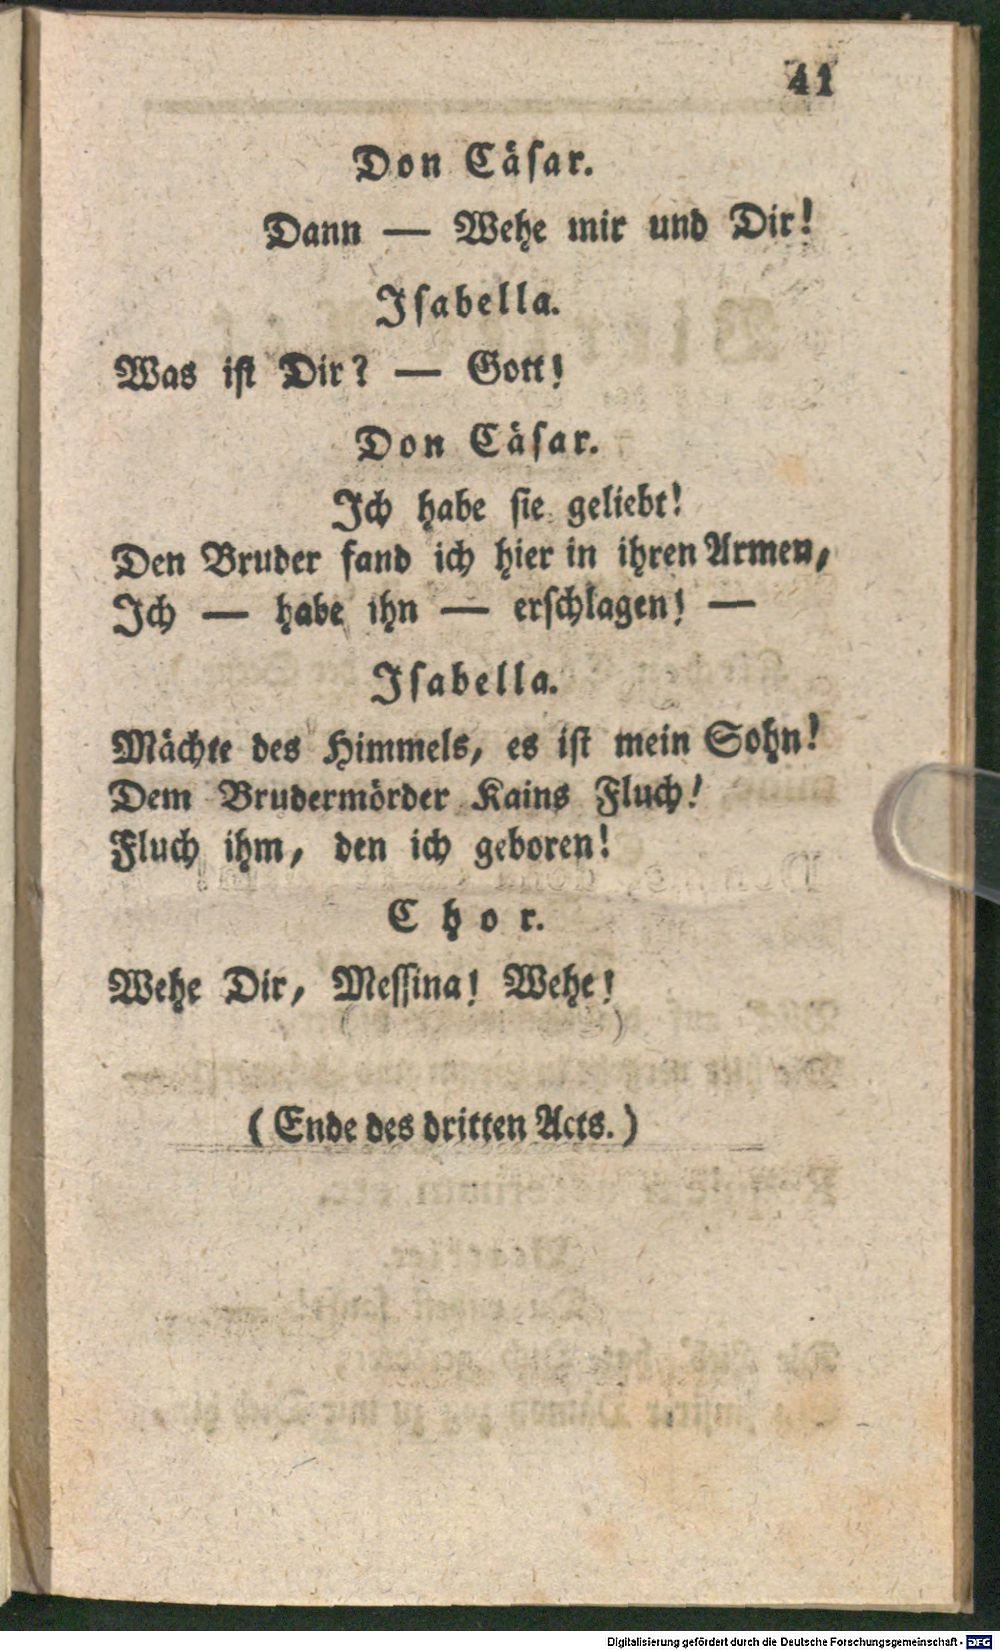 41
Don Cäsar.
Dann — Wehe mir und Dir!
Isabella.
Was ist Dir? — Gott!
Don Cäsar.
Ich habe sie geliebt!
Den Bruder fand ich hier in ihren Armen,
Ich — habe ihn — erschlagen! —
Isabella.
Mächte des Himmels, es ist mein Sohn!
Dem Brudermörder Kains Fluch!
Fluch ihm, den ich geboren!
Chor.
Wehe Dir, Messina! Wehe!
(Ende des dritten Acts.)
Digitalisierung gefördert durch die Deutsche Forschungsgemeinschaft - DFG